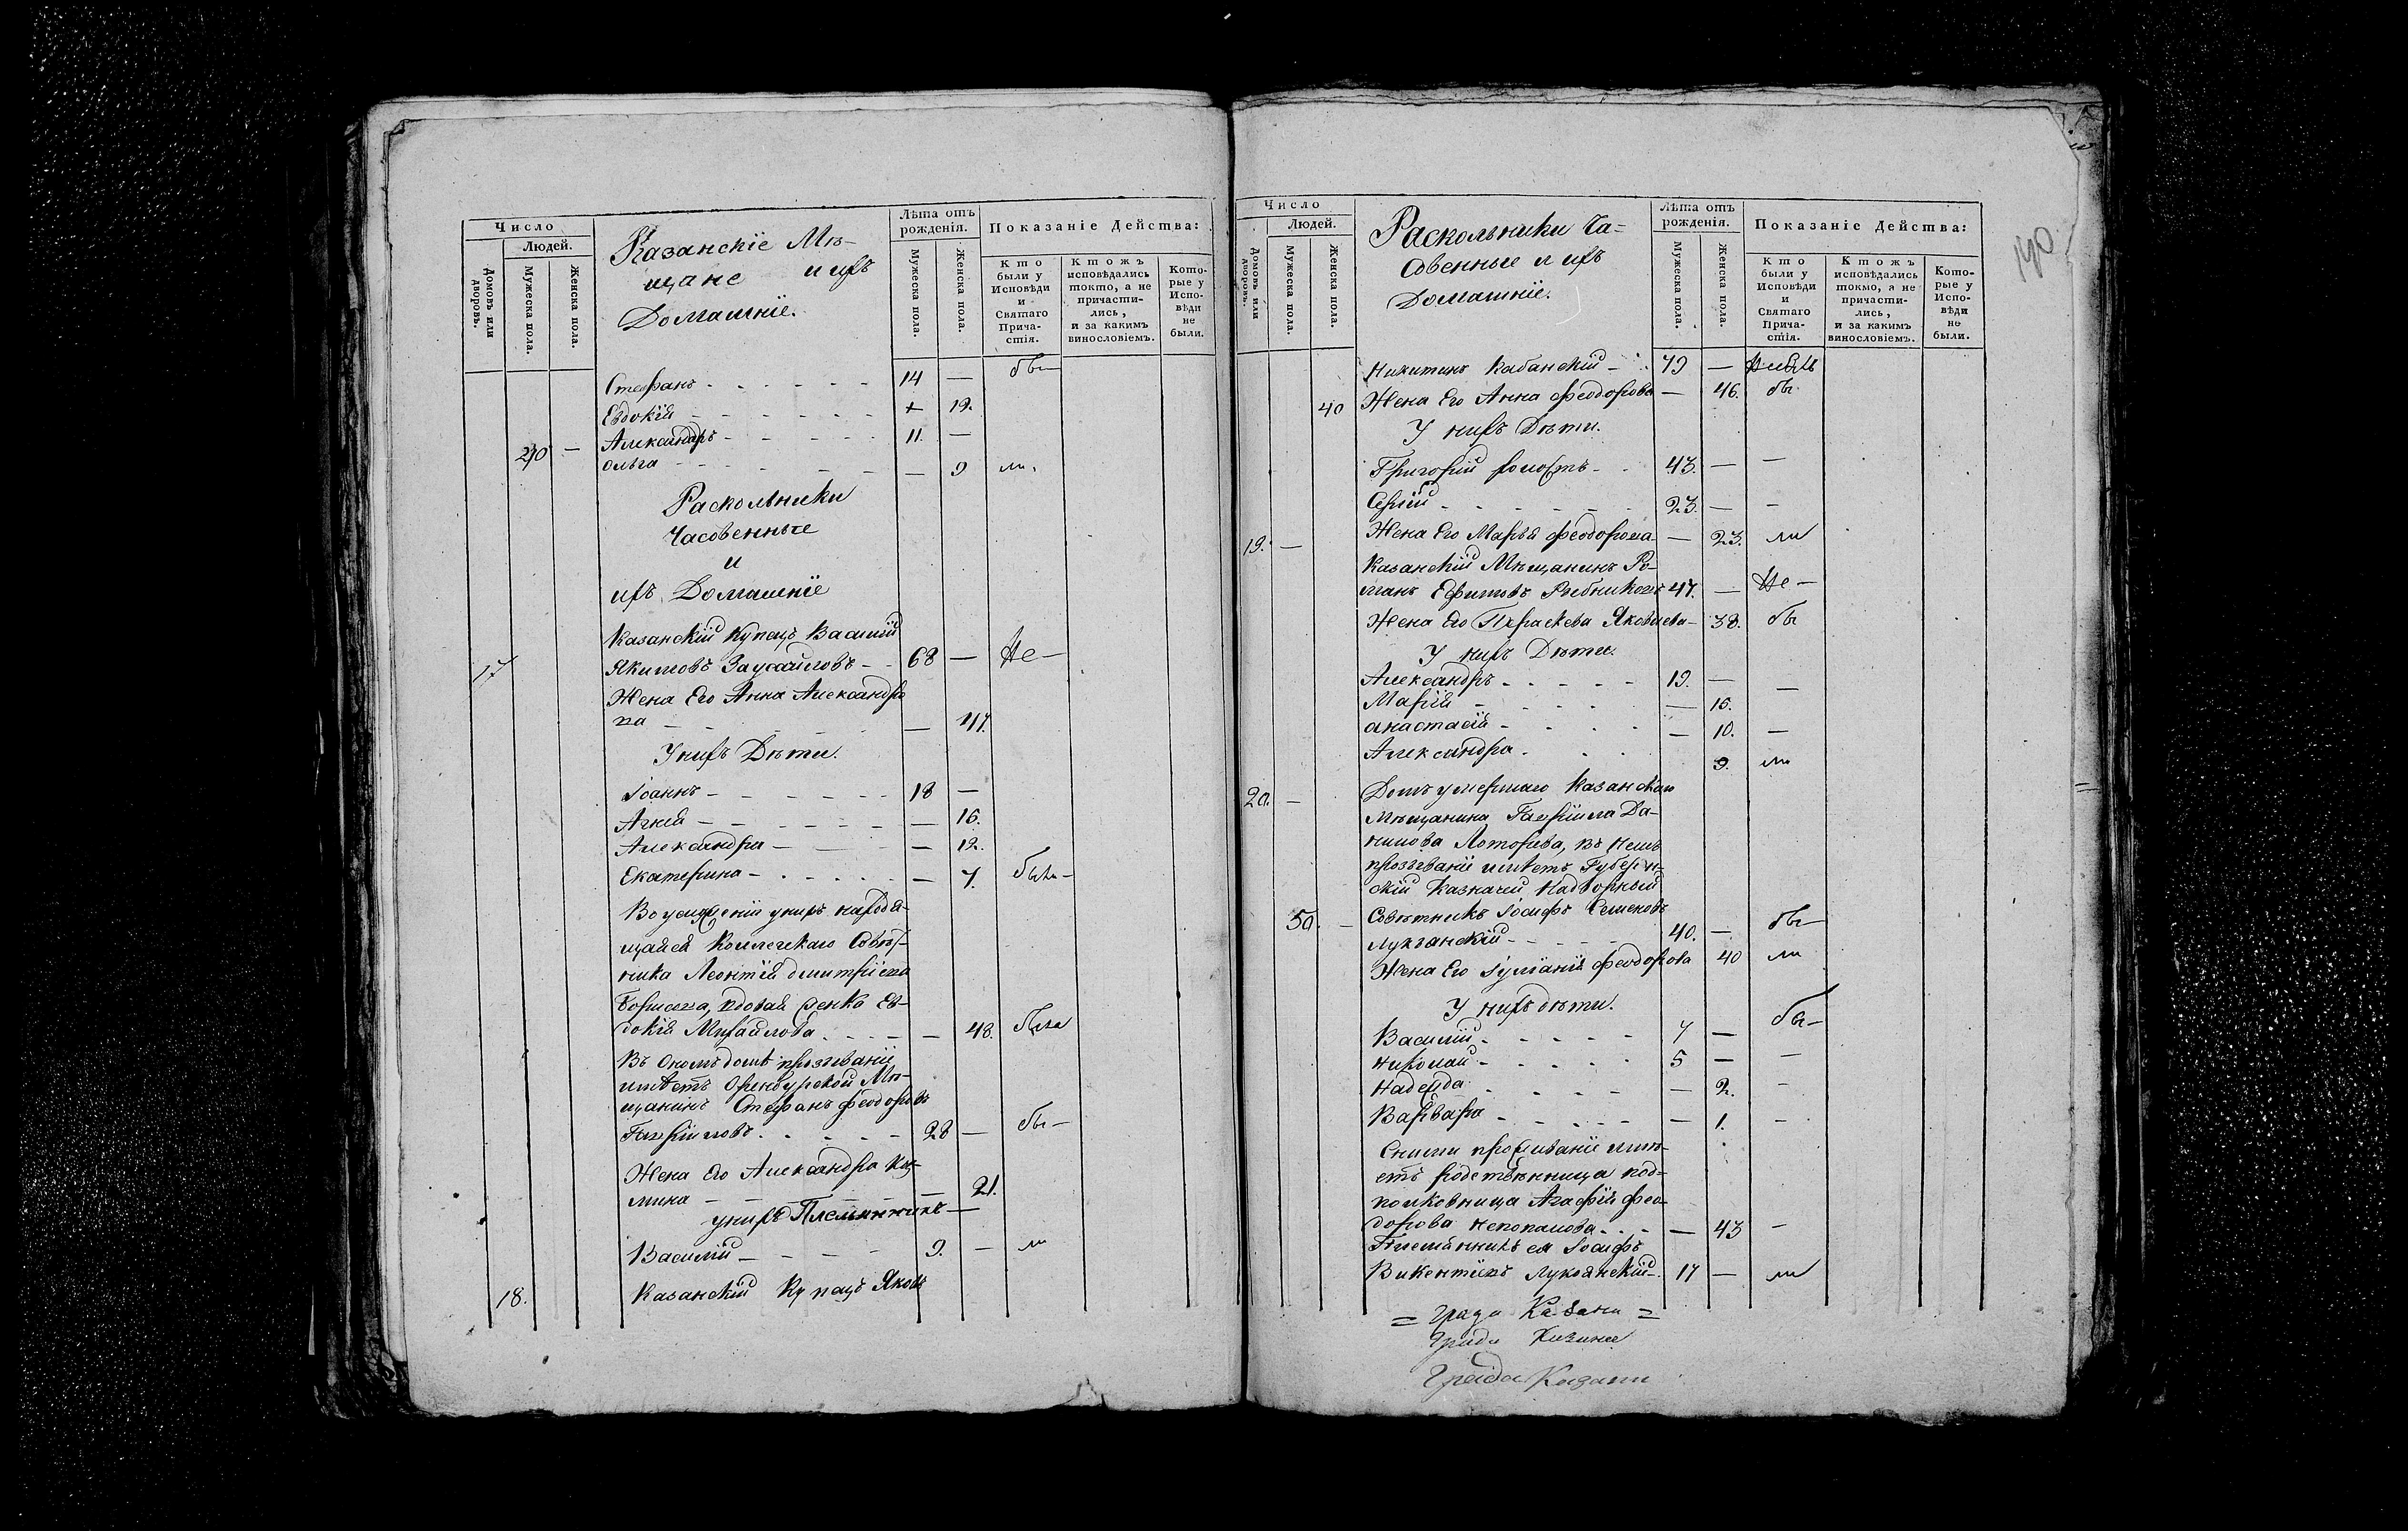 Число
Людей.
Домовъ или дворовъ.
Мужеска пола.
Женска пола.
Казанскіе Мѣ-
щане и ихъ
Домашніе.
Лѣта отъ рожденія.
Мужеска пола.
Женска пола.
Показаніе Действа:
Кто были у Исповѣди и Святаго Прича- стія.
Ктожъ исповѣдались токмо, а не причасти- лись, и за какимъ винословіемъ.
Кото- рые у Испо- вѣди не были.
Стефанъ 14 — бы—
Евдокія 12.
Александръ 11. —
40 — Ольга — 9 ли.
Раскольники
Часовенные
и
ихъ Домашніе
Казанскій Купецъ Василій
17 Якимовъ Заусайловъ 68 — Не—
Жена Его Анна Александро
ва — 47.
У нихъ Дѣти.
Іоаннъ 18 —
Агнія — 16.
Александра — 12.
Екатерина — 7. были—
щаяся Коллежскаго Совѣт-
ника Леонтія Дмитріева
Борисова, вдовая женка Ев-
докія Михайлова — 48. была
Въ ономъ домѣ прозываніе
имѣетъ Оренбурской Мѣ-
щанинъ Стефанъ Феодоровъ
Гавриловъ 28 — бы—
Жена Его Александра Куз-
мина — 21.
у нихъ Племянникъ—
Василій 9. — ли
18. Казанскій Купецъ Яковъ
Число
Людей.
Домовъ или дворовъ.
Мужеска пола.
Женска пола.
Раскольники Ча-
совенные и ихъ
Домашніе.
Лѣта отъ рожденія.
Мужеска пола.
Женска пола.
Показаніе Действа:
Кто были у Исповѣди и Святаго Прича- стія.
Ктожъ исповѣдались токмо, а не причасти- лись, и за какимъ винословіемъ.
Кото- рые у Испо- вѣди не были.
190
Никитинъ Кабанскій 79 —
40 Жена Его Анна Феодорова — 46. бы
У нихъ Дѣти.
Григорій холостъ 43. — —
Сергій 23. — —
19. — Жена Его Марья Феодорова — 23. ли
Казанскій Мѣщанинъ Ро-
манъ Ефимовъ Рыбниковъ 47. — Не—
Жена Его Параскева Яковлева— 38. бы
У нихъ Дѣти.
Александръ 19. — —
Марія — 15.
Анастасія — 10. —
Александра 9. ли
20. — Домъ умершаго Казанскаго
Мѣщанина Гавріила Да-
нилова Лоторева, въ немъ
прозываніе имѣетъ Губерн-
скій Казначей Надворный
50. — Совѣтникъ Іосифъ Семеновъ
Лукьанскій 40. — бы—
Жена Его Іуліанія Феодорова 40 ли
У нихъ дѣти.
Василій 7 — бы—
Николай 5 — —
Надежда — 2. —
Варвара — 1. —
Сними проживаніе имѣ-
етъ родственница под-
полковница Агафія Фео-
дорова — 43 —
Племянникъ ея Іосифъ
Викентіевъ Лукьянскій 17 — ли
= Града Казани =
Града Казани
Града Казани